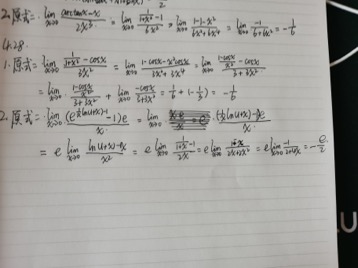 2. 原式 = lim x→0 (arctanx - x)/2x³ = lim x→0 (1/(1+x²) - 1)/6x² = lim x→0 (1-1-x²)/(6x²+6x⁴) = lim x→0 -1/(6+6x²) = -1/6
4.28.
1. 原式 = lim x→0 (1/(1+x²) - cosx)/3x² = lim x→0 (1-cosx-x²cosx)/(3x²+3x⁴) = lim x→0 ((1-cosx)/x² - cosx)/(3+3x²)
= lim x→0 ((1-cosx)/x²)/(3+3x²) + lim x→0 -cosx/(3+3x²) = 1/6 + (-1/3) = -1/6
2. 原式 = lim x→0 (e^(1/x ln(1+x) -1) -1)e/x = lim x→0 (1/x ln(1+x) -1)e/x
= e lim x→0 (ln(1+x) - x)/x² = e lim x→0 (1/(1+x) - 1)/2x = e lim x→0 -x/(2x+2x²) = e lim x→0 -1/(2+2x) = -e/2